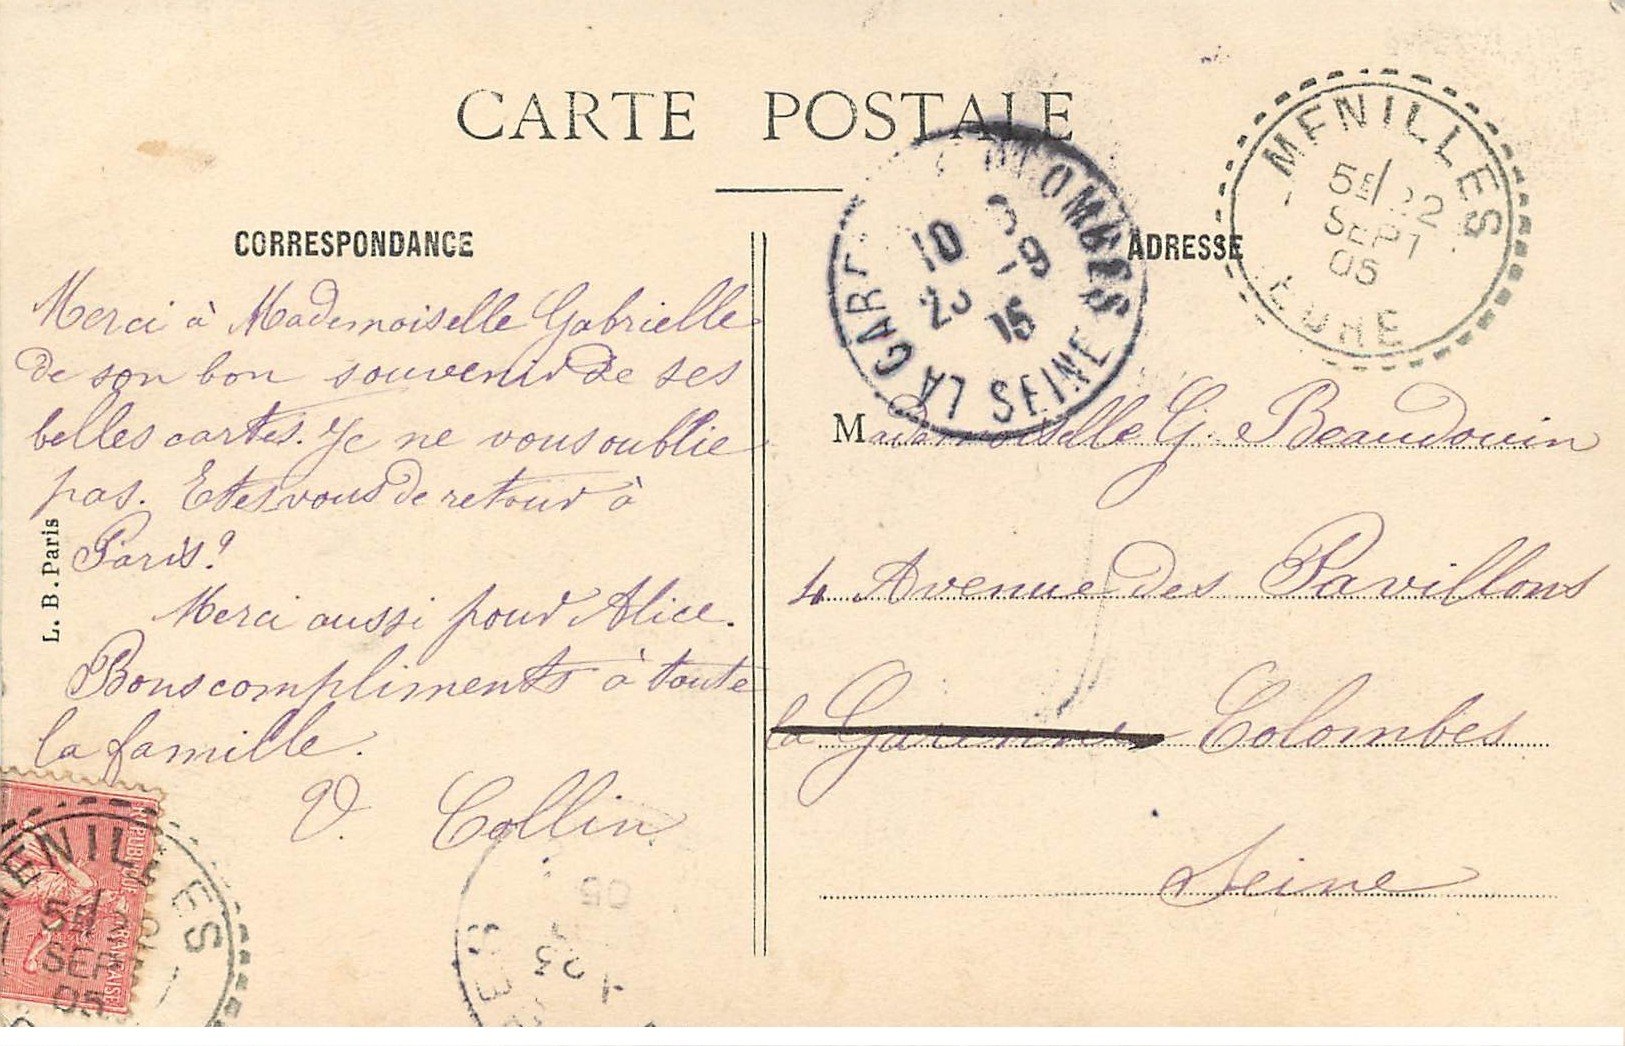 CARTE POSTALE
CORRESPONDANCE
Merci à Mademoiselle Gabrielle
de son bon souvenir de ses
belles cartes. Je ne vous oublie
pas. Etes vous de retour à
Paris?
Merci aussi pour Alice.
Bons compliments à toute
la famille.
V. Collin
L. B. Paris
ADRESSE
Mademoiselle G. Beaudouin
4 Avenue des Pavillons
la Garenne Colombes
Seine
MENILLES
5E 22
SEPT
05
EURE
COLOMBES
LA GAR
SEINE
10
23 9
15
REPUBLIQUE FRANCAISE
MENILLES
5E
SEP
05
05
23